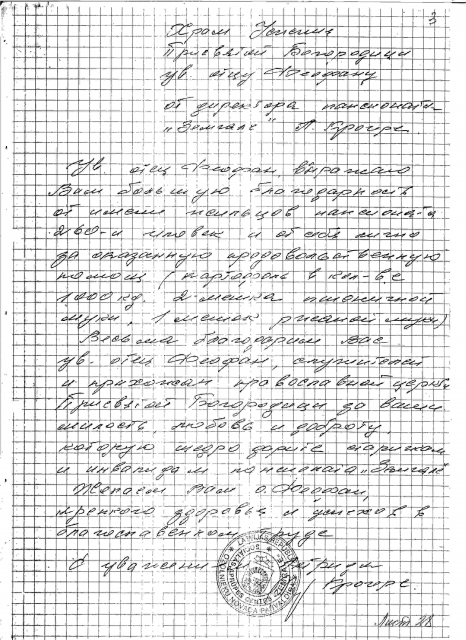 3
Храм Успения
Присвятой Богородици
ув. отцу Феофану
от директора пансионата
„Земгале" П. Крогре
Ув. отец Феофан, выражаю
Вам большую благодарность
от имени жильцов пансионата
260-и человек и от себя лично
за оказанную продовольственную
помощь (картофель в кол-ве
1000 кг. 2 мешка пшеничной
муки, 1 мешок ржаной муки)
Весьма благодарим Вас
ув. отец Феофан, служителей
и прихожан православной церкви
Присвятой Богородици за вашу
милость, любовь и доброту,
которую щедро дарите старикам
и инвалидам пансионата „Земгале"
Желаем Вам о. Феофан,
крепкого здоровья и успехов в
благословенном труде
С уважением
Крогре.
Лист 28